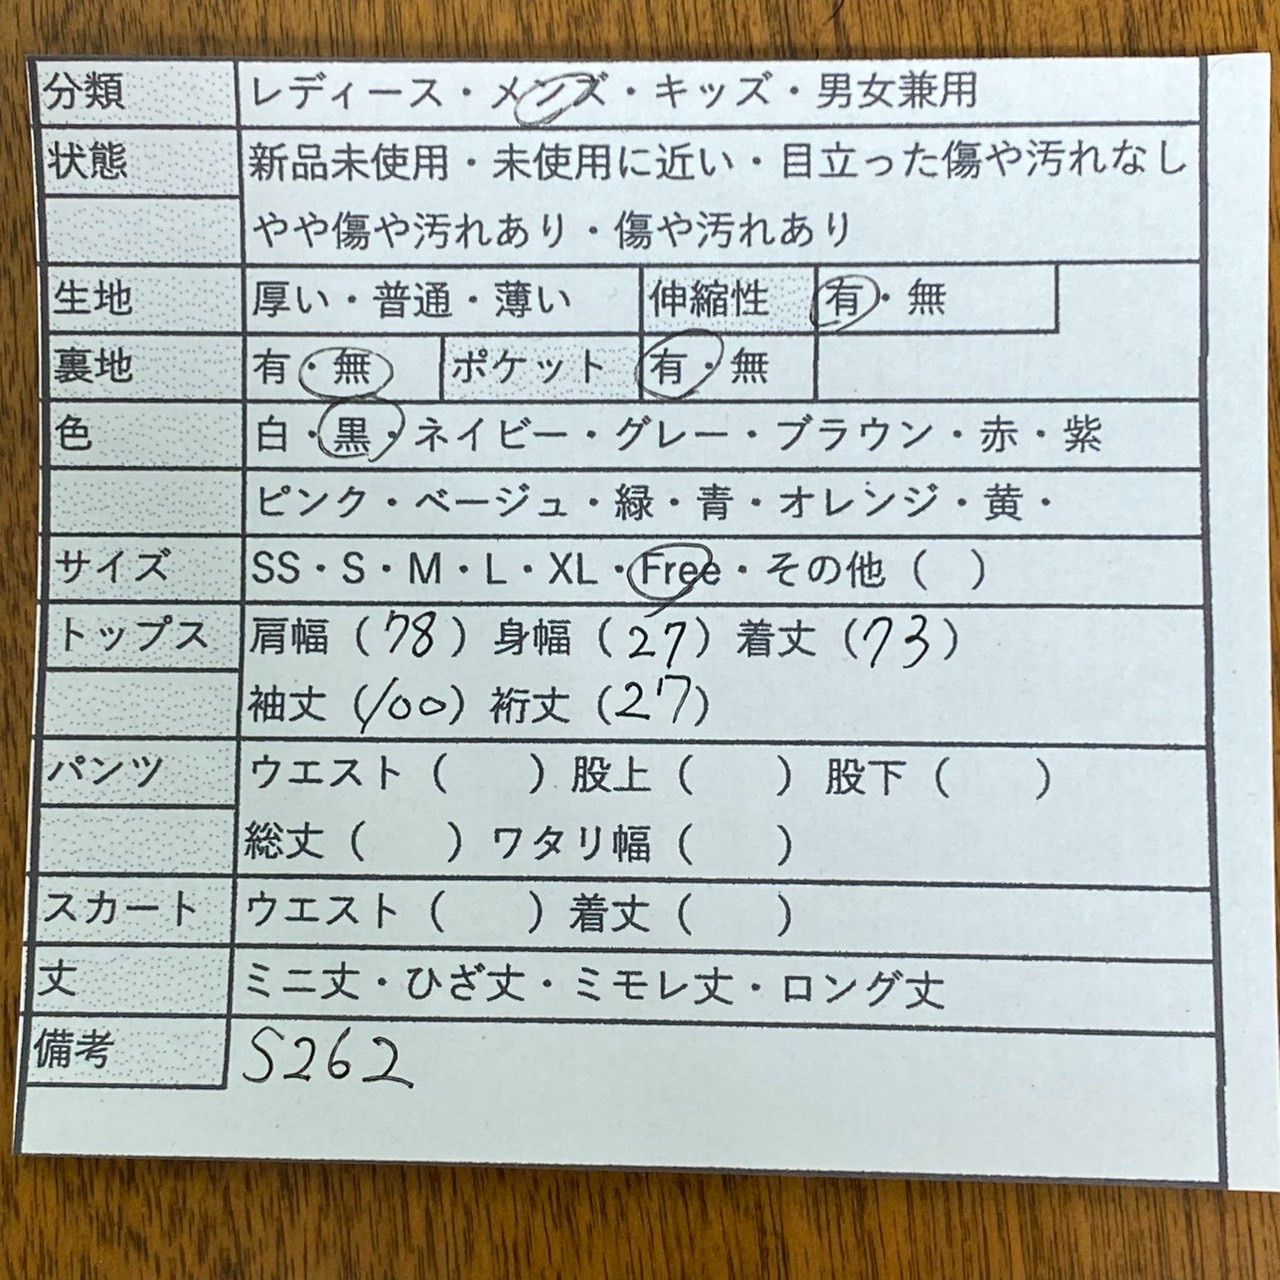 分類 レディース・メンズ・キッズ・男女兼用
状態 新品未使用・未使用に近い・目立った傷や汚れなし
やや傷や汚れあり・傷や汚れあり
生地 厚い・普通・薄い 伸縮性 有・無
裏地 有・無 ポケット 有・無
色 白・黒・ネイビー・グレー・ブラウン・赤・紫
ピンク・ベージュ・緑・青・オレンジ・黄・
サイズ SS・S・M・L・XL・Free・その他（ ）
トップス 肩幅（78）身幅（27）着丈（73）
袖丈（100）裄丈（27）
パンツ ウエスト（ ）股上（ ）股下（ ）
総丈（ ）ワタリ幅（ ）
スカート ウエスト（ ）着丈（ ）
丈 ミニ丈・ひざ丈・ミモレ丈・ロング丈
備考 S262